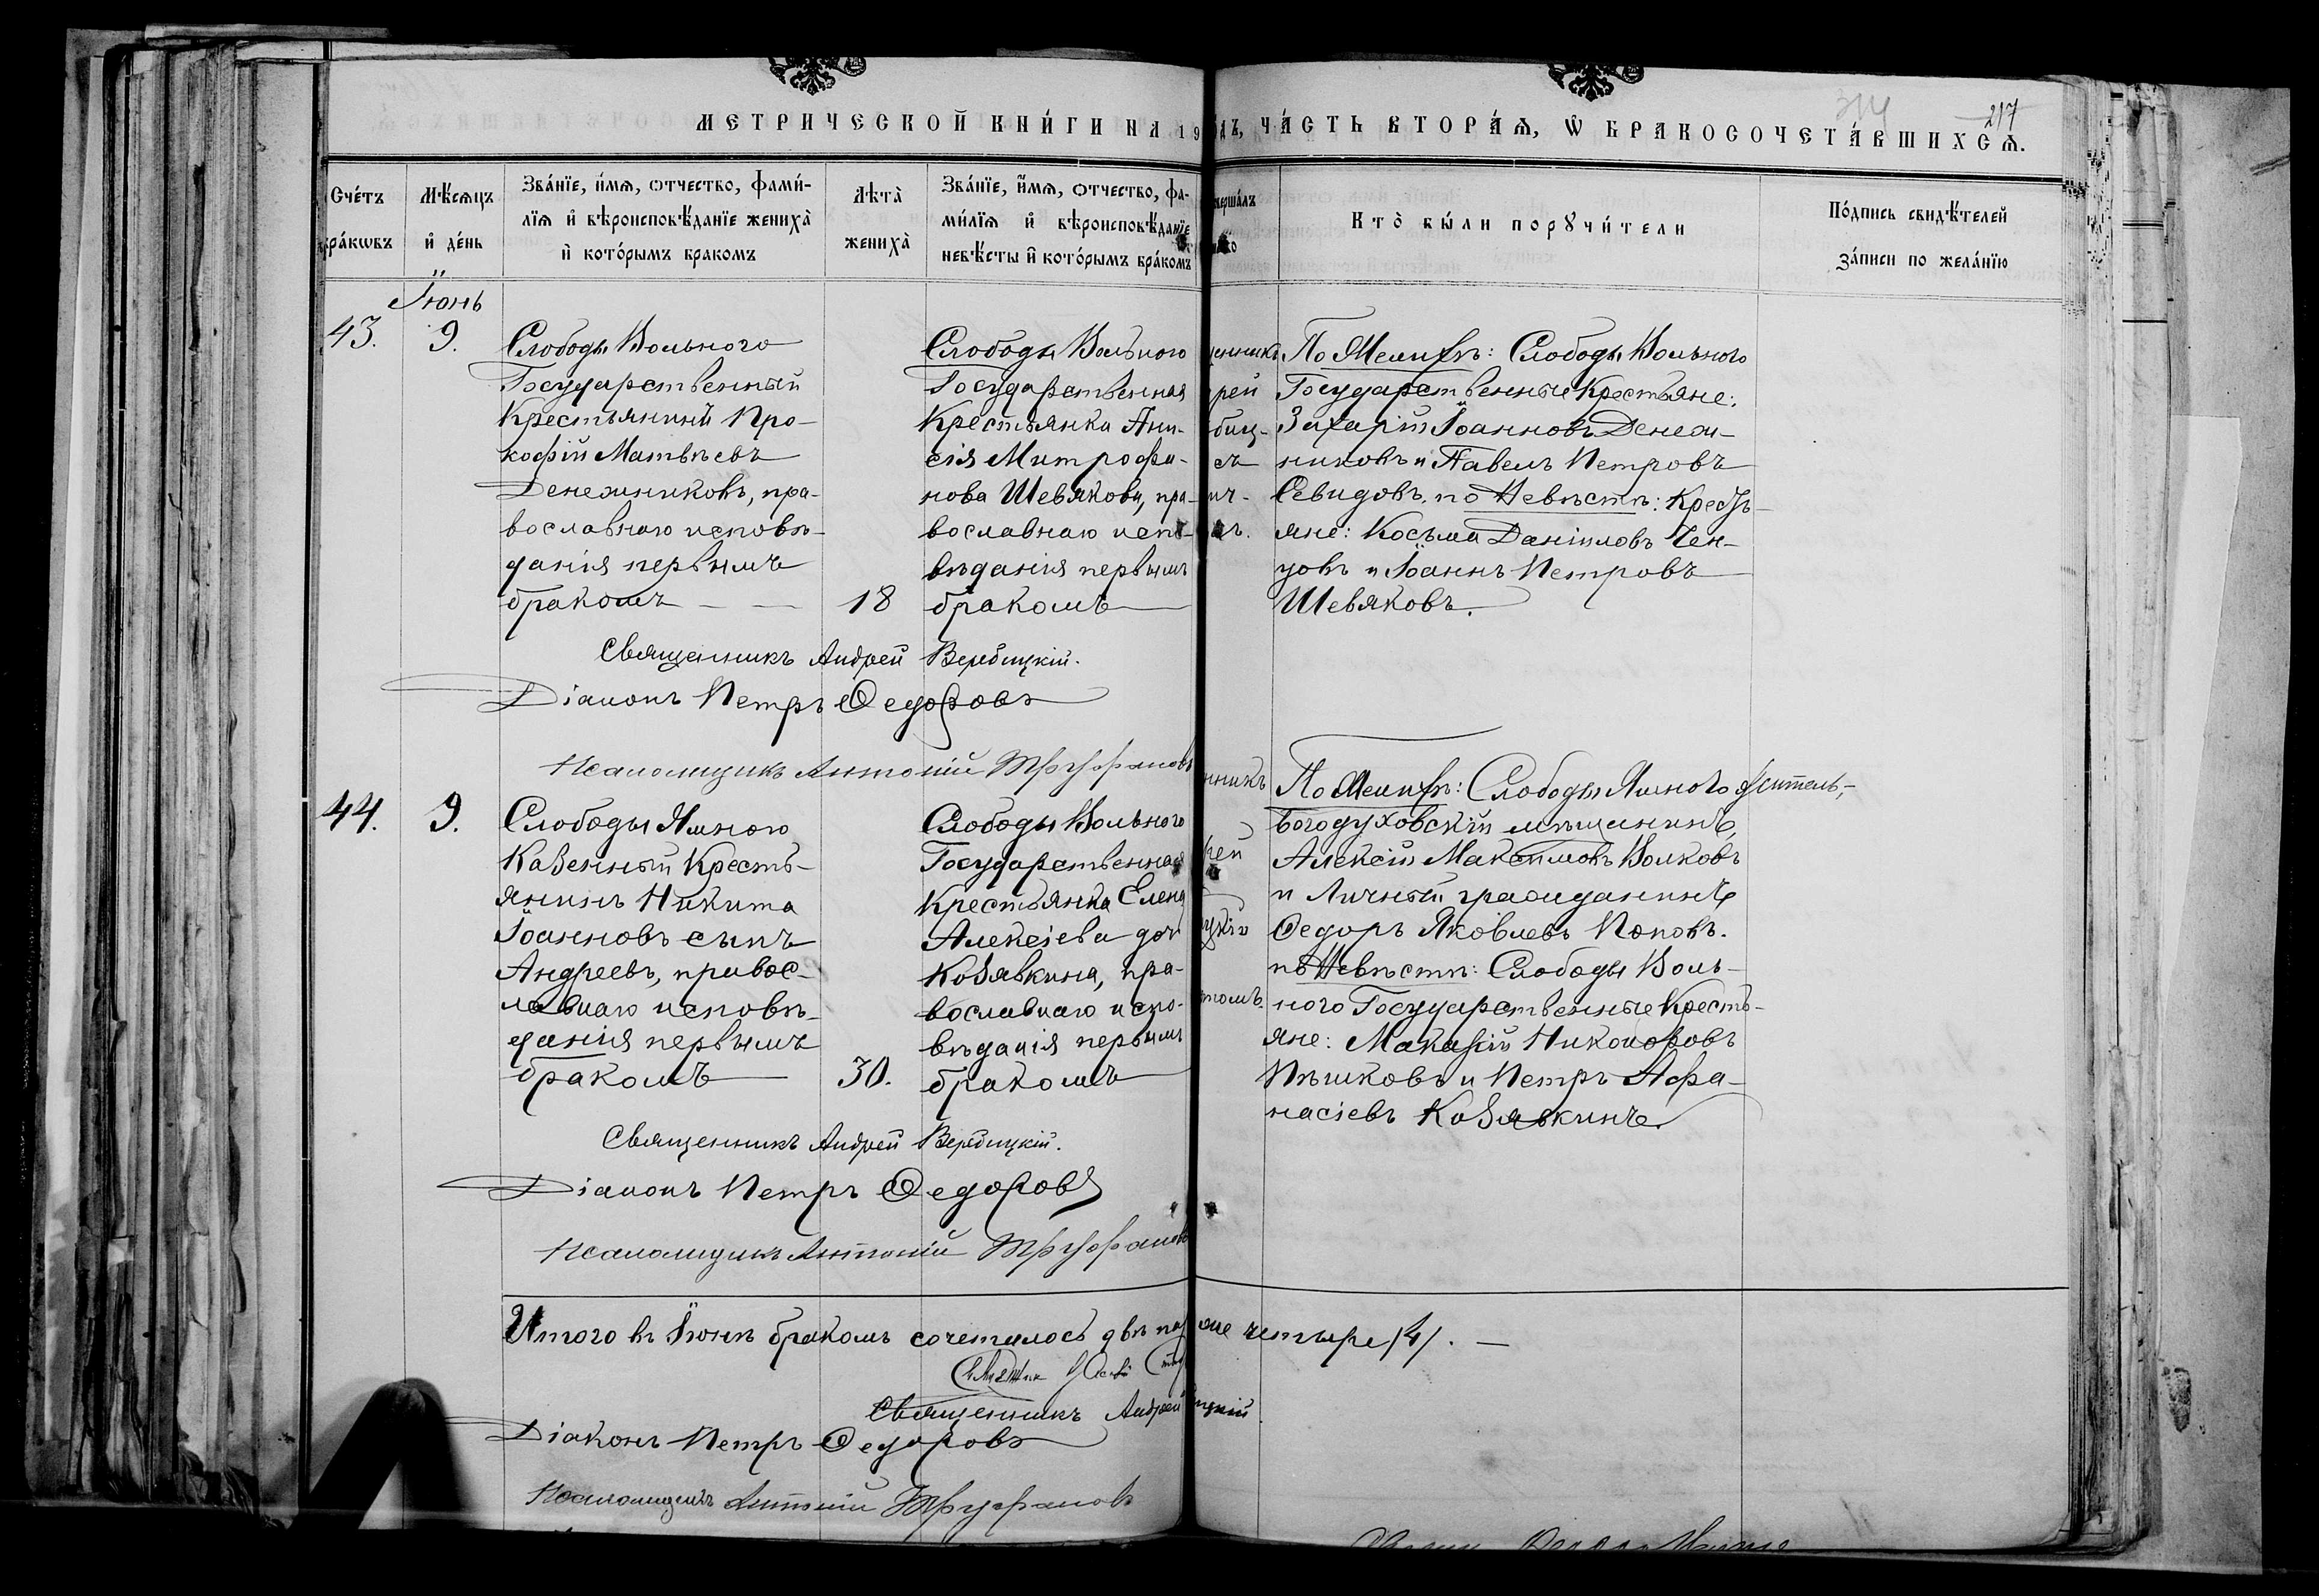 217
МЕТРИЧЕСКОЙ КНИ́ГИ НА 19
ДЪ, ЧА́СТЬ ВТОРА́Ѧ, Ѡ҆ БРАКОСОЧЕТА́ВШИХСѦ.
Сче́тъ
бра́кωвъ
Мѣ́сѧцъ
и҆ де́нь
Зва́нїе, и҆́мѧ, ѻтчество, фами́-
лїѧ и҆ вѣроисповѣ́данїе жениха̀
и҆ кото́рымъ бракомъ
Лѣта̀
жениха̀
Зва́нїе, и҆́мѧ, ѻтчество, фа-
ми́лїѧ и҆ вѣроисповѣ́данїе
невѣ́сты и҆ кото́рымъ бра́комъ
вершалъ
Кто̀ бы́ли порꙋчи́тели
По́дпись свидѣ́телей
за́писи по жела́нїю
Іюнь
43.
9.
Слободы Вольного
Государственный
Крестьянинъ Про-
кофій Матвѣевъ
Денежниковъ, пра-
вославнаго исповѣ-
данія первымъ
бракомъ
18
Слободы Вольного
Государственная
Крестьянка Ани-
сія Митрофа-
нова Шевякова, пра-
вославнаго испо-
вѣданія первымъ
бракомъ
По Женихѣ: Слободы Вольного
Государственные Крестьяне:
Захарій Іоанновъ Денеж-
никовъ и Павелъ Петровъ
Севидовъ. по Невѣстѣ: Кресть-
яне: Косьма Даніиловъ Чен-
цовъ и Іоаннъ Петровъ
Шевяковъ.
Священникъ Андрей Вербицкій.
Діаконъ Петръ Ѳедоровъ
Псаломщикъ Антоній Труфановъ
44.
9.
Слободы Ямного
Казенный Кресть-
янинъ Никита
Іоанновъ сынъ
Андреевъ, правос-
лавнаго исповѣ-
данія первымъ
бракомъ
30.
Слободы Вольного
Государственная
Крестьянка Елена
Алексіева доч
Козявкина, пра-
вославнаго испо-
вѣданія первымъ
бракомъ
По Женихѣ: Слободы Ямного житель,
Богодуховскій мѣщанинъ,
Алексій Максимовъ Волковъ
и Личный гражданинъ
Ѳедоръ Яковлевъ Поповъ.
по Невѣстѣ: Слободы Воль-
ного Государственные Кресть-
яне: Макарій Никоноровъ
Пѣшковъ и Петръ Афа-
насіевъ Козявкинъ.
Священникъ Андрей Вербицкій.
Діаконъ Петръ Ѳедоровъ
Псаломщикъ Антоній Труфановъ
Итого въ Іюнѣ бракомъ сочеталось двѣ пар
четыре /4/.
Священникъ Андрей
цкій
Діаконъ Петръ Ѳедоровъ
Псаломщикъ Антоній Труфановъ